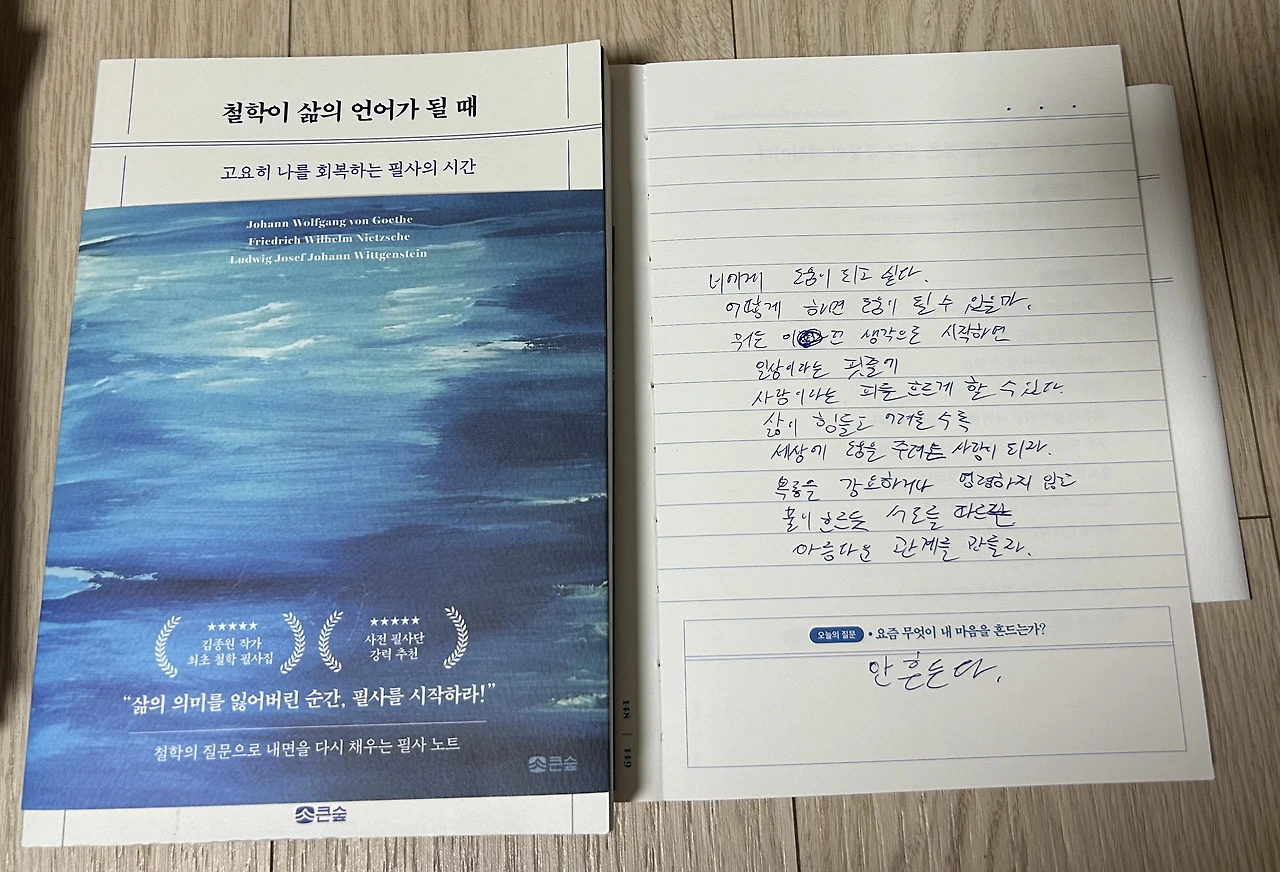 철학이 삶의 언어가 될 때
고요히 나를 회복하는 필사의 시간
Johann Wolfgang von Goethe
Friedrich Wilhelm Nietzsche
Ludwig Josef Johann Wittgenstein
★★★★★
김종원 작가
최초 철학 필사집
★★★★★
사전 필사단
강력 추천
“삶의 의미를 잃어버린 순간, 필사를 시작하라!”
철학의 질문으로 내면을 다시 채우는 필사 노트
큰숲
큰숲
148 | 149
너에게 도움이 되고 싶다.
어떻게 하면 도움이 될 수 있을까.
뭐든 이 생각으로 시작하면
일상이라는 핏줄기
사랑이라는 피를 흐르게 할 수 있다.
삶이 힘들고 어려울 수록
세상에 도움을 주려는 사람이 되라.
복종을 강요하거나 명령하지 않고
물이 흐르듯 서로를 따르는
아름다운 관계를 만들라.
오늘의 질문 • 요즘 무엇이 내 마음을 흔드는가?
안 흔든다.